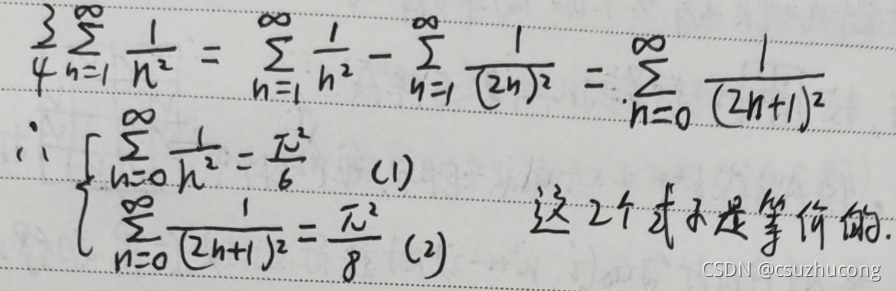 3/4 ∑_{n=1}^{∞} 1/n² = ∑_{n=1}^{∞} 1/n² − ∑_{n=1}^{∞} 1/(2n)² = ∑_{n=0}^{∞} 1/(2n+1)²
∴ { ∑_{n=0}^{∞} 1/n² = π²/6 (1)
∑_{n=0}^{∞} 1/(2n+1)² = π²/8 (2) 这2个式子是等价的.
CSDN @csuzhucong